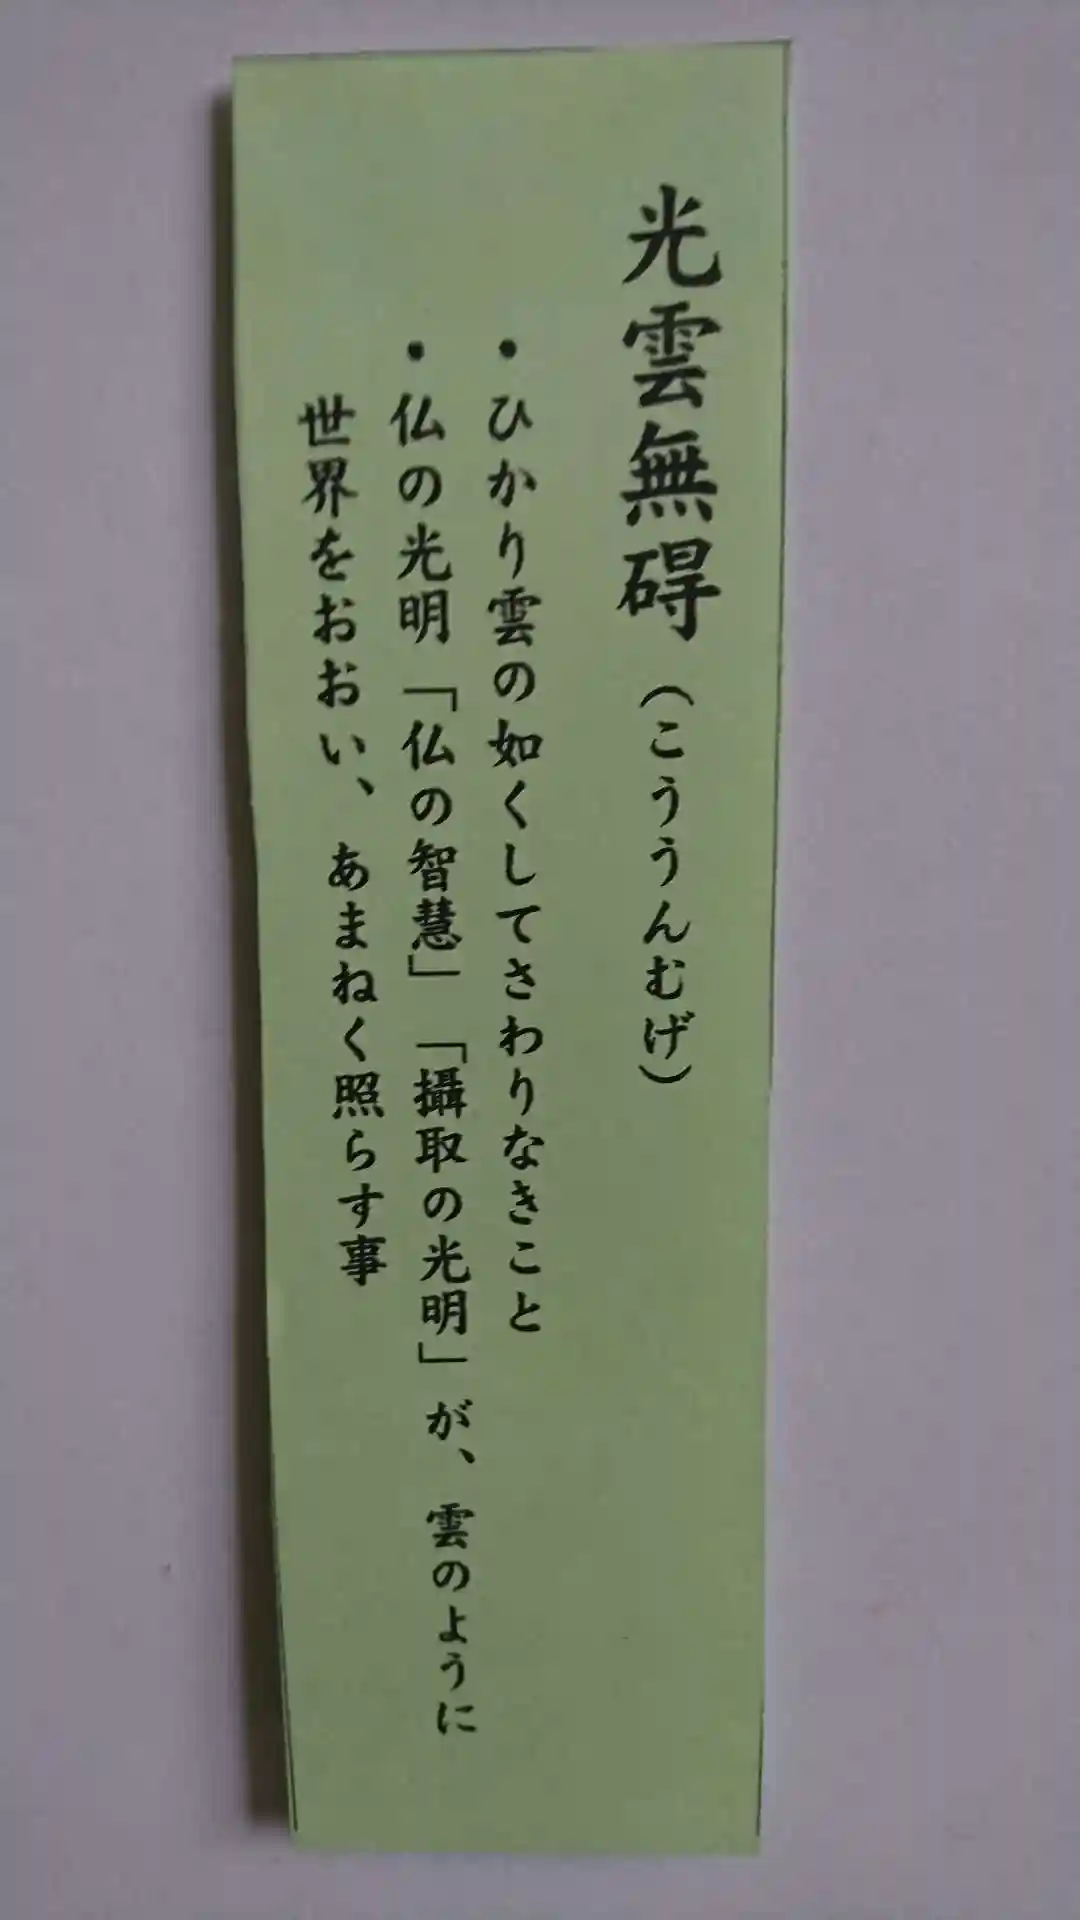 光雲無碍(こううんむげ)
・ひかり雲の如くしてさわりなきこと
・仏の光明「仏の智慧」「攝取の光明」が、雲のように
世界をおおい、あまねく照らす事